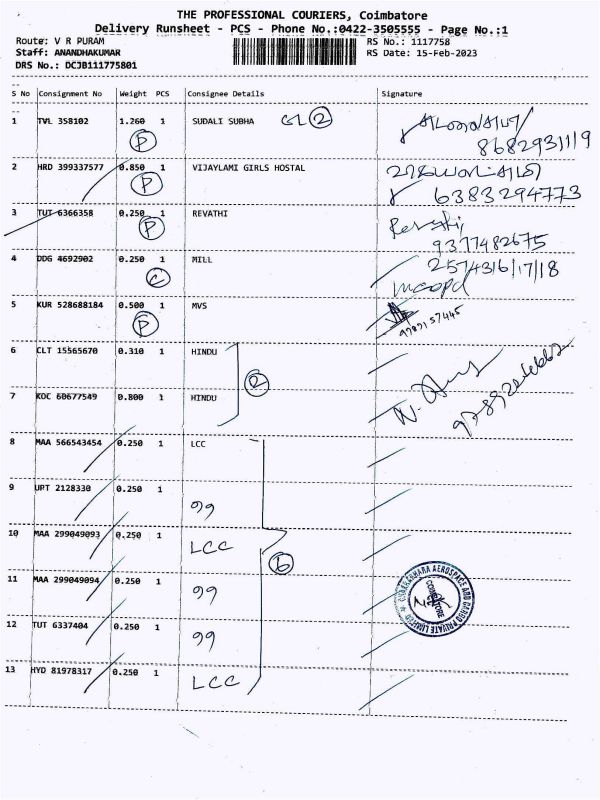 THE PROFESSIONAL COURIERS, Coimbatore
Delivery Runsheet - PCS - Phone No.:0422-3505555 - Page No.:1
Route: V R PURAM RS No.: 1117758
Staff: ANANDHAKUMAR RS Date: 15-Feb-2023
DRS No.: DCJB111775801
S No Consignment No Weight PCS Consignee Details Signature
1 TVL 358102 1.260 1 SUDALI SUBHA GL 2
P 8682931119
2 HRD 399337577 0.850 1 VIJAYLAMI GIRLS HOSTAL
P 6383294773
3 TUT 6366358 0.250 1 REVATHI Revathi
P 9377482675
4 DDG 4692902 0.250 1 MILL 2574316/17/18
C
5 KUR 528688184 0.500 1 MVS
P 9787157445
6 CLT 15565670 0.310 1 HINDU
2
7 KOC 60677549 0.800 1 HINDU
8 MAA 566543454 0.250 1 LCC
9 UPT 2128330 0.250 1 99
10 MAA 299049093 0.250 1 LCC
6
11 MAA 299049094 0.250 1 99
12 TUT 6337404 0.250 1 99
13 HYD 81978317 0.250 1 LCC
AEROSPACE AND CARGO PRIVATE LIMITED
COIMBATORE